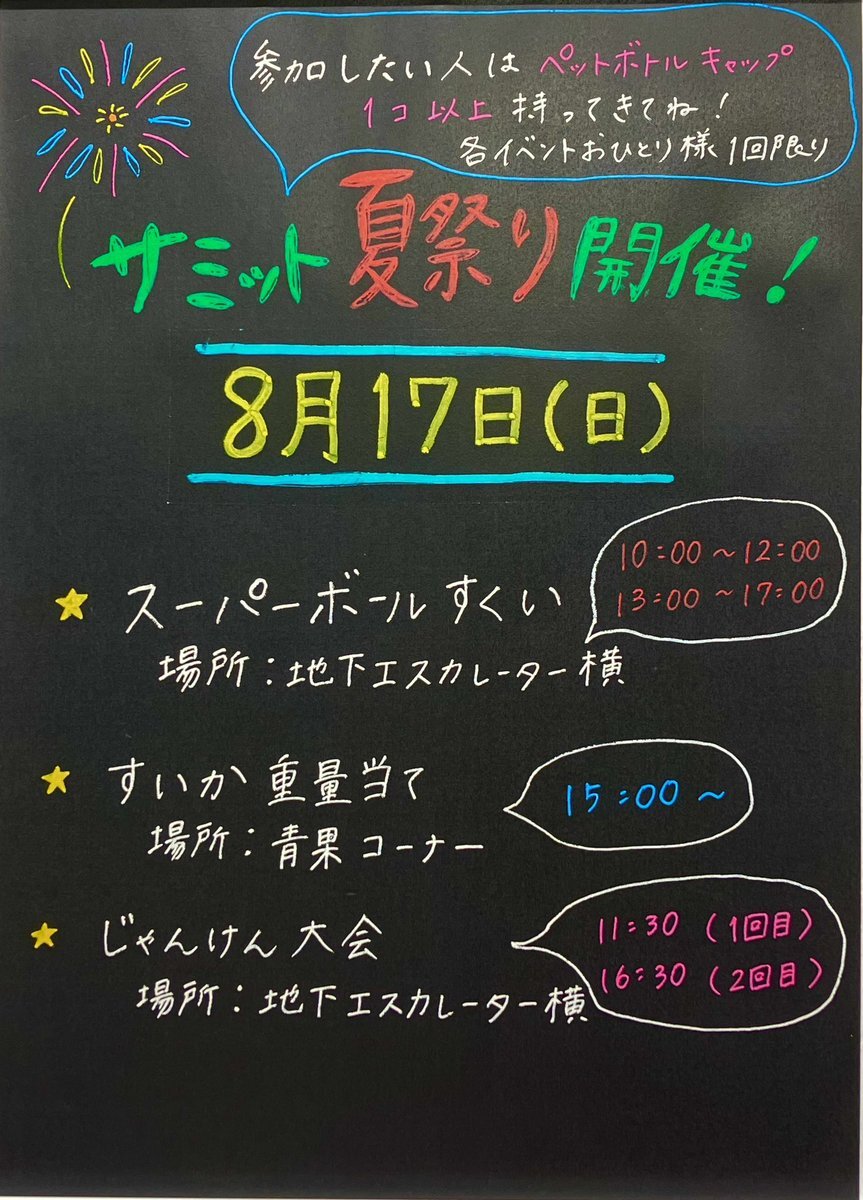 参加したい人は ペットボトルキャップ
1コ以上 持ってきてね！
各イベントおひとり様1回限り
サミット夏祭り開催！
8月17日(日)
10:00～12:00
13:00～17:00
スーパーボールすくい
場所：地下エスカレーター横
すいか重量当て
15:00～
場所：青果コーナー
じゃんけん大会
11:30（1回目）
16:30（2回目）
場所：地下エスカレーター横